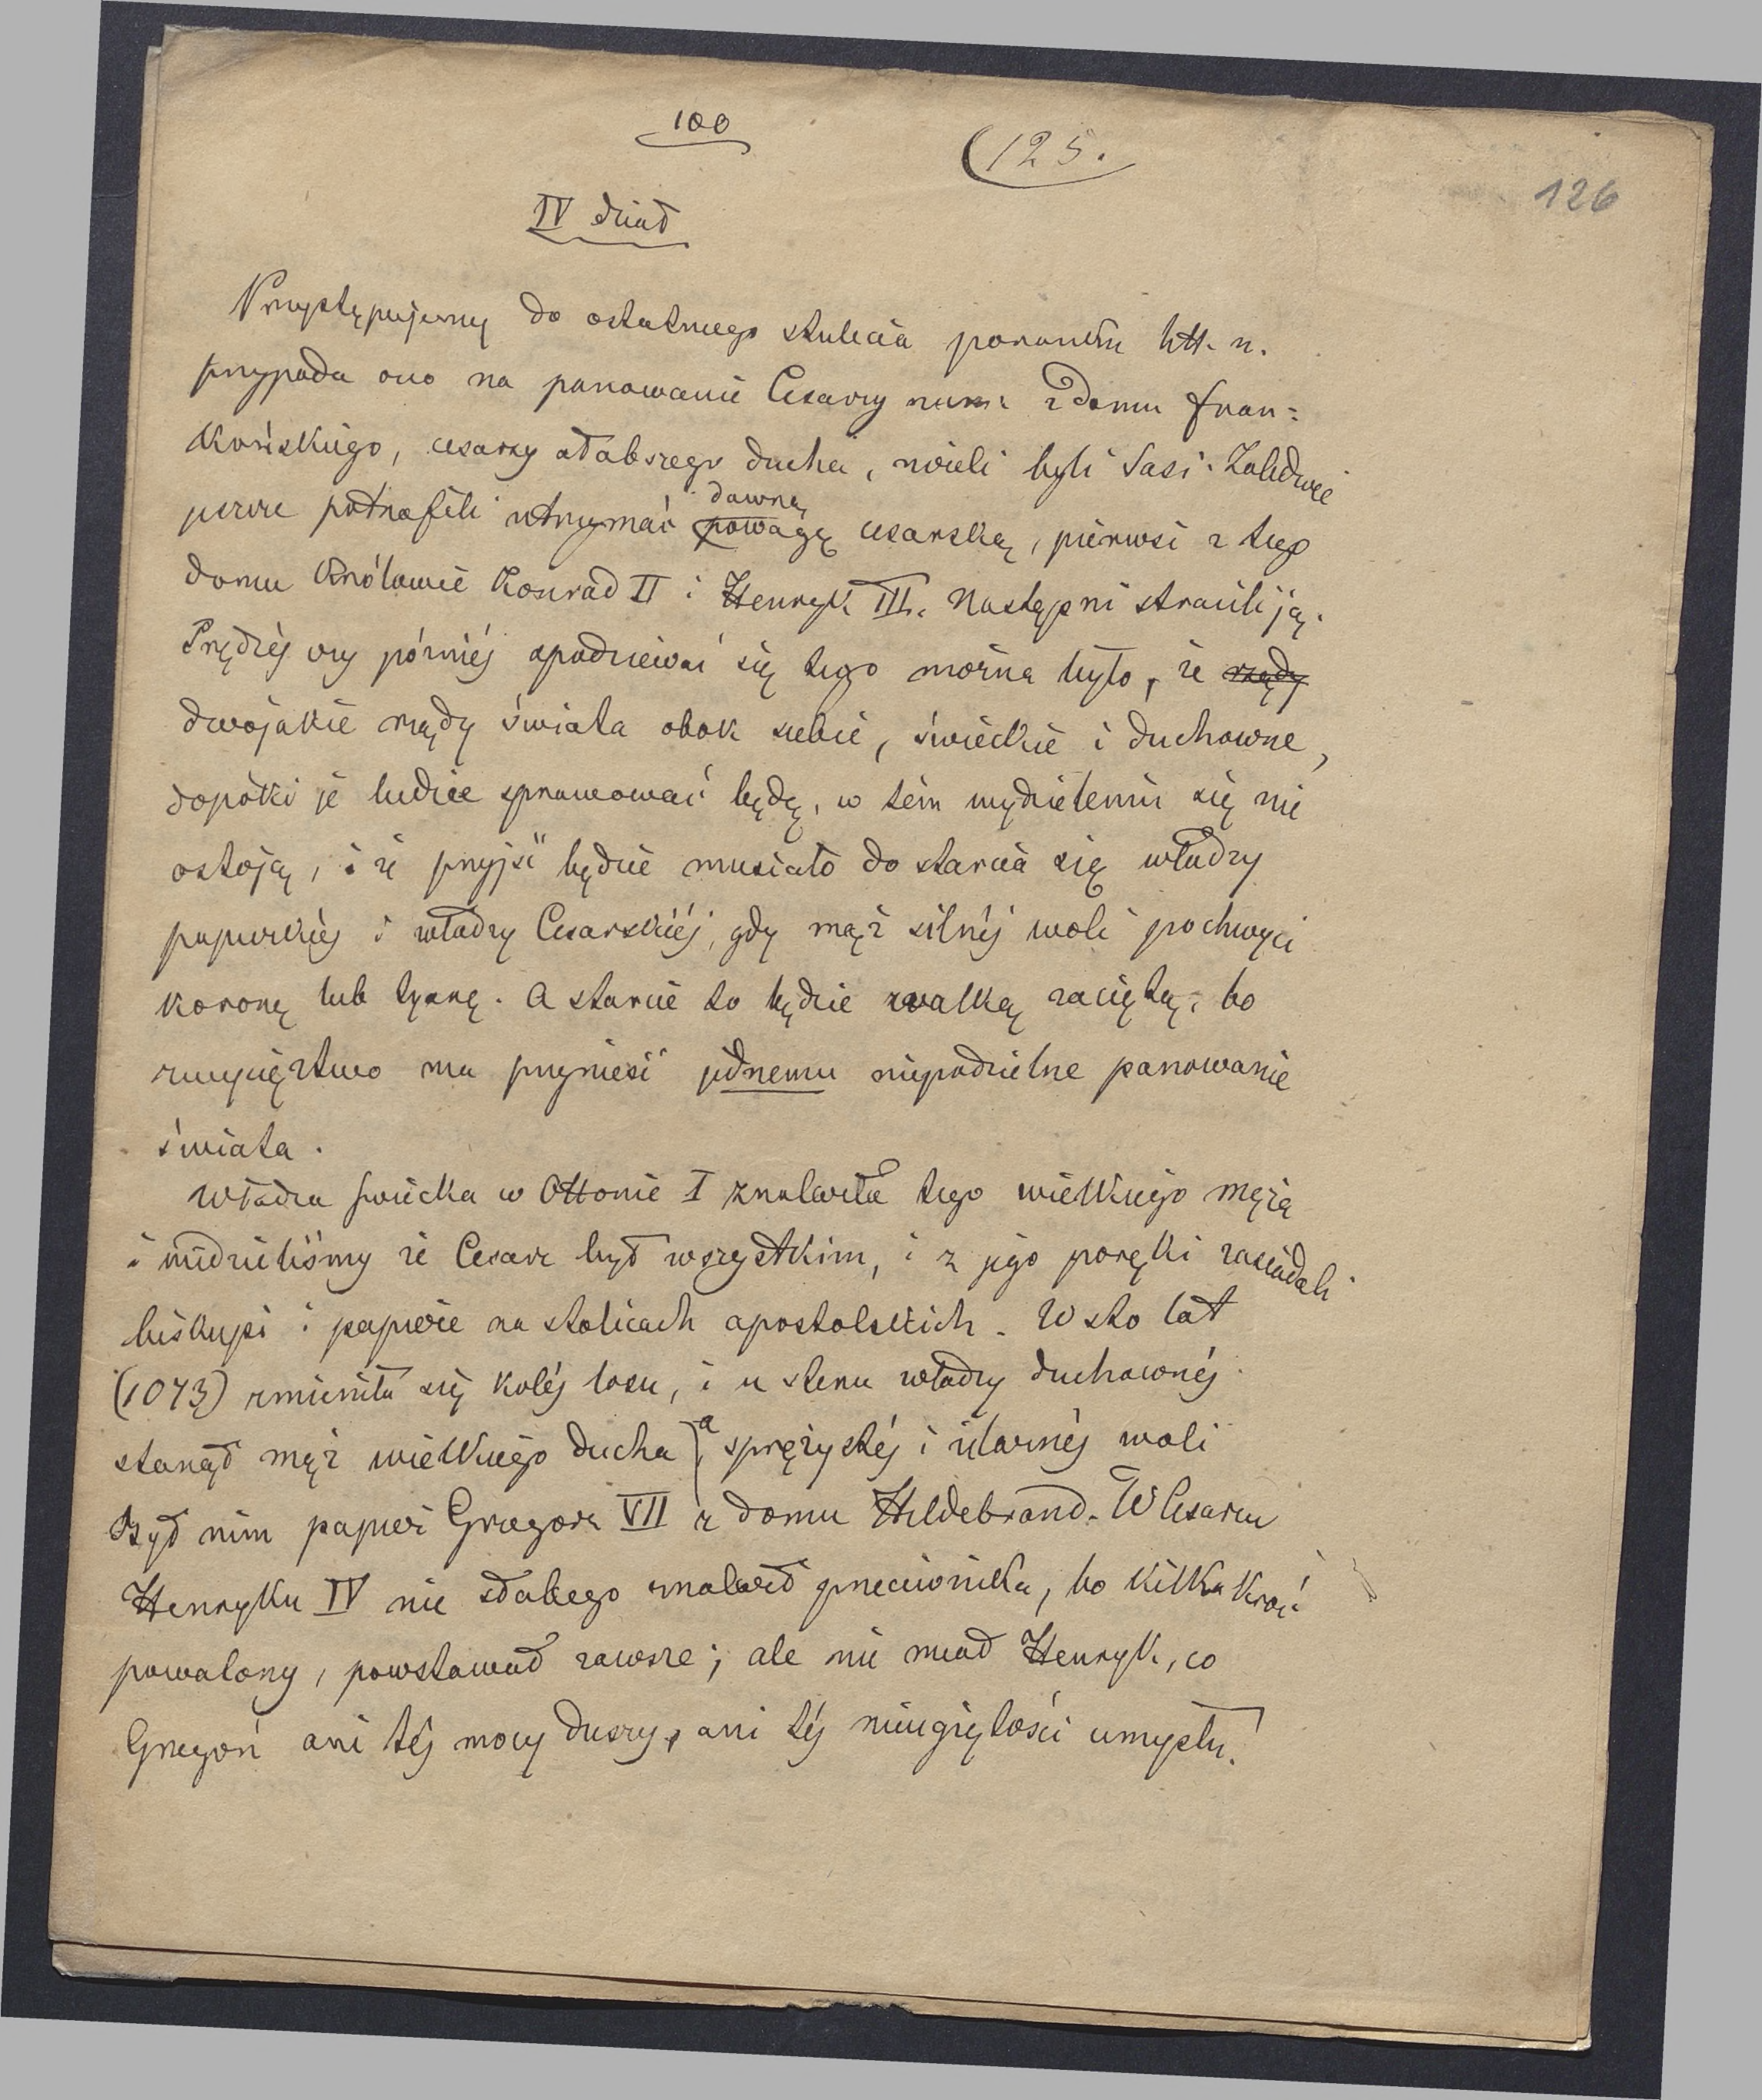 100
(125.
126
IV dział
Przystępujemy do ostatniego stulecia litt. n.
przypada ono na panowanie Cesarzy z domu fran=
końskiego, cesarzy słabszego ducha, niżeli byli Sasi. Zaledwie
jeszcze potrafili utrzymać dawną powagę cesarską, pierwsi z tego
domu Królowie Konrad II i Henryk III. Następni stracili ją.
Prędzéj czy późniéj spodziewać się tego można było, że rządy
dwojakie rządy świata obok siebie, świeckie i duchowne,
dopóki je ludzie sprawować będą, w tém wydzieleniu się nie
ostoją, i że przyjść będzie musiało do starcia się władzy
papiezkiéj i władzy Cesarskiéj, gdy mąż silnéj woli pochwyci
koronę lub tyarę. A starcie to będzie walką zaciętą, bo
zwycięztwo ma przynieść jednemu niepodzielne panowanie
świata.
Władza świecka w Ottonie I znalazła tego wielkiego męża
i widzieliśmy że Cesarz był wszystkim, i z jego poręki zasiadali
biskupi i papieże na stolicach apostolskich. W sto lat
(1073) zmieniła się koléj losu, i u steru władzy duchownéj
stanął mąż wielkiego ducha, a sprężystéj i żelaznéj woli
Był nim papież Grzegorz VII z domu Hildebrand. W Cesarzu
Henryku IV nie słabego znalazł przeciwnika, bo kilka kroć
powalony, powstawał zawsze; ale nie miał Henryk, co
Grzegorz ani téj mocy duszy, ani téj nieugiętości umysłu.